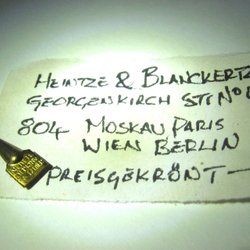 HEINTZE & BLANCKERTZ
GEORGENKIRCH STR No
804 MOSKAU PARIS
WIEN BERLIN
PREISGEKRÖNT —